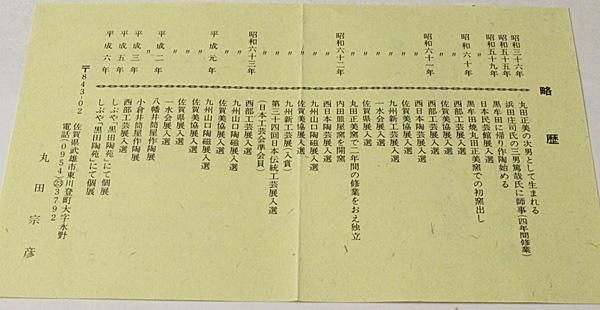 略歴
昭和三十六年 丸田正美の次男として生まれる
昭和五十五年 浜田庄司氏の三男篤哉氏に師事(四年間修業)
昭和五十九年 黒牟田に帰り作陶始める
〃 日本民芸館展入選
昭和六十年 黒牟田焼丸田正美窯での初窯出し
〃 西部工芸展入選
〃 佐賀美協展入選
昭和六十一年 西部工芸展入選
〃 西日本陶芸展入選
〃 佐賀美協展入選
〃 九州新工芸展入選
〃 一水会展入選
〃 佐賀県展入選
〃 丸田正美窯で二年間の修業をおえ独立
昭和六十二年 内田皿屋窯を開窯
〃 西日本陶芸展入選
〃 九州山口陶磁展入選
〃 佐賀美協展入選
〃 九州新工芸展(入賞)
〃 第三十四回日本伝統工芸展入選
(日本工芸会準会員)
昭和六十三年 西部工芸展入選
〃 九州山口陶磁展入選
〃 佐賀美協展入選
平成元年 九州山口陶磁展入選
〃 佐賀美協展入選
〃 佐賀県展入選
〃 一水会展入選
平成二年 八幡井筒屋作陶展
〃 小倉井筒屋作陶展
平成三年 西部工芸展入選
平成五年 しぶや「黒田陶苑」にて個展
平成六年 しぶや「黒田陶苑」にて個展
〒843-02
佐賀県武雄市東川登町大字永野
電話(0954)㉓3792
丸田宗彦